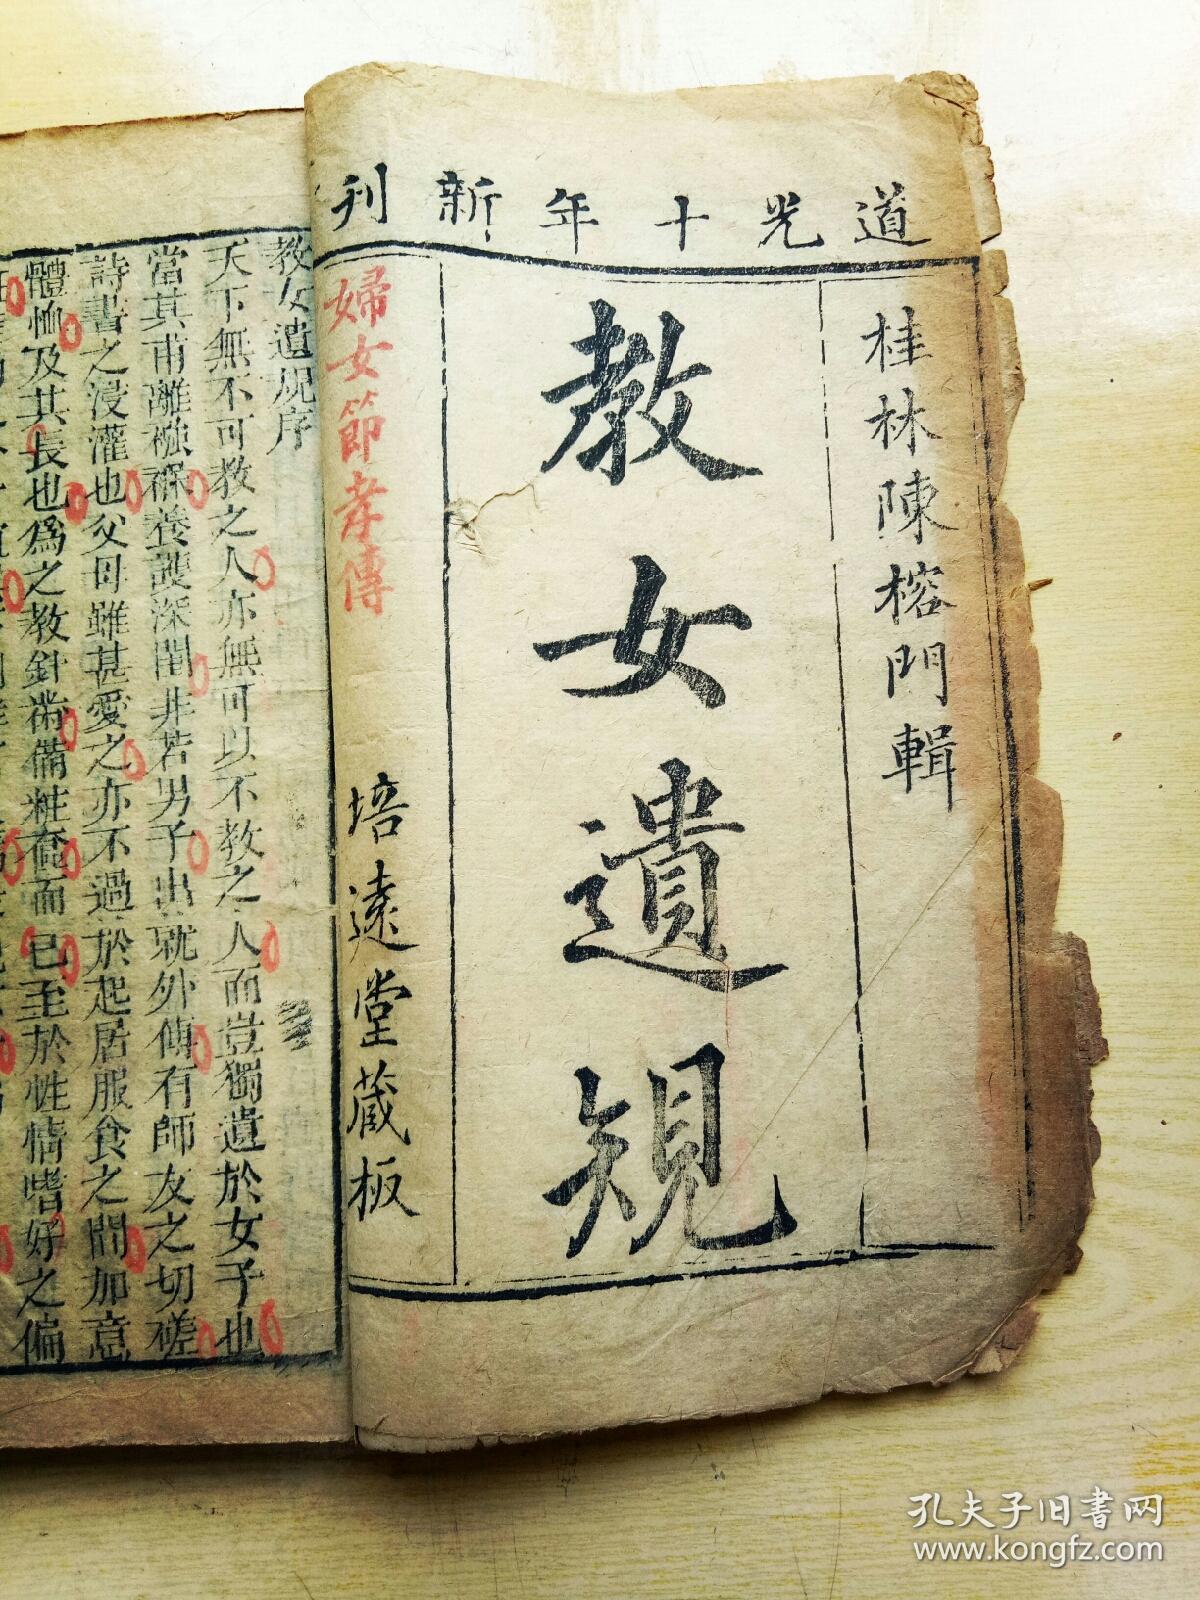 道光十年新刊
桂林陳榕門輯
教女遺規
婦女節孝傳
培遠堂藏板
教女遺規序
天下無不可教之人亦無可以不教之人而豈獨遺於女子也
當其甫離襁褓養護深閨非若男子出就外傅有師友之切磋
詩書之浸灌也父母雖甚愛之亦不過於起居服食之間加意
體恤及其長也為之教針黹備粧奩而已至於性情嗜好之偏
孔夫子旧书网
www.kongfz.com